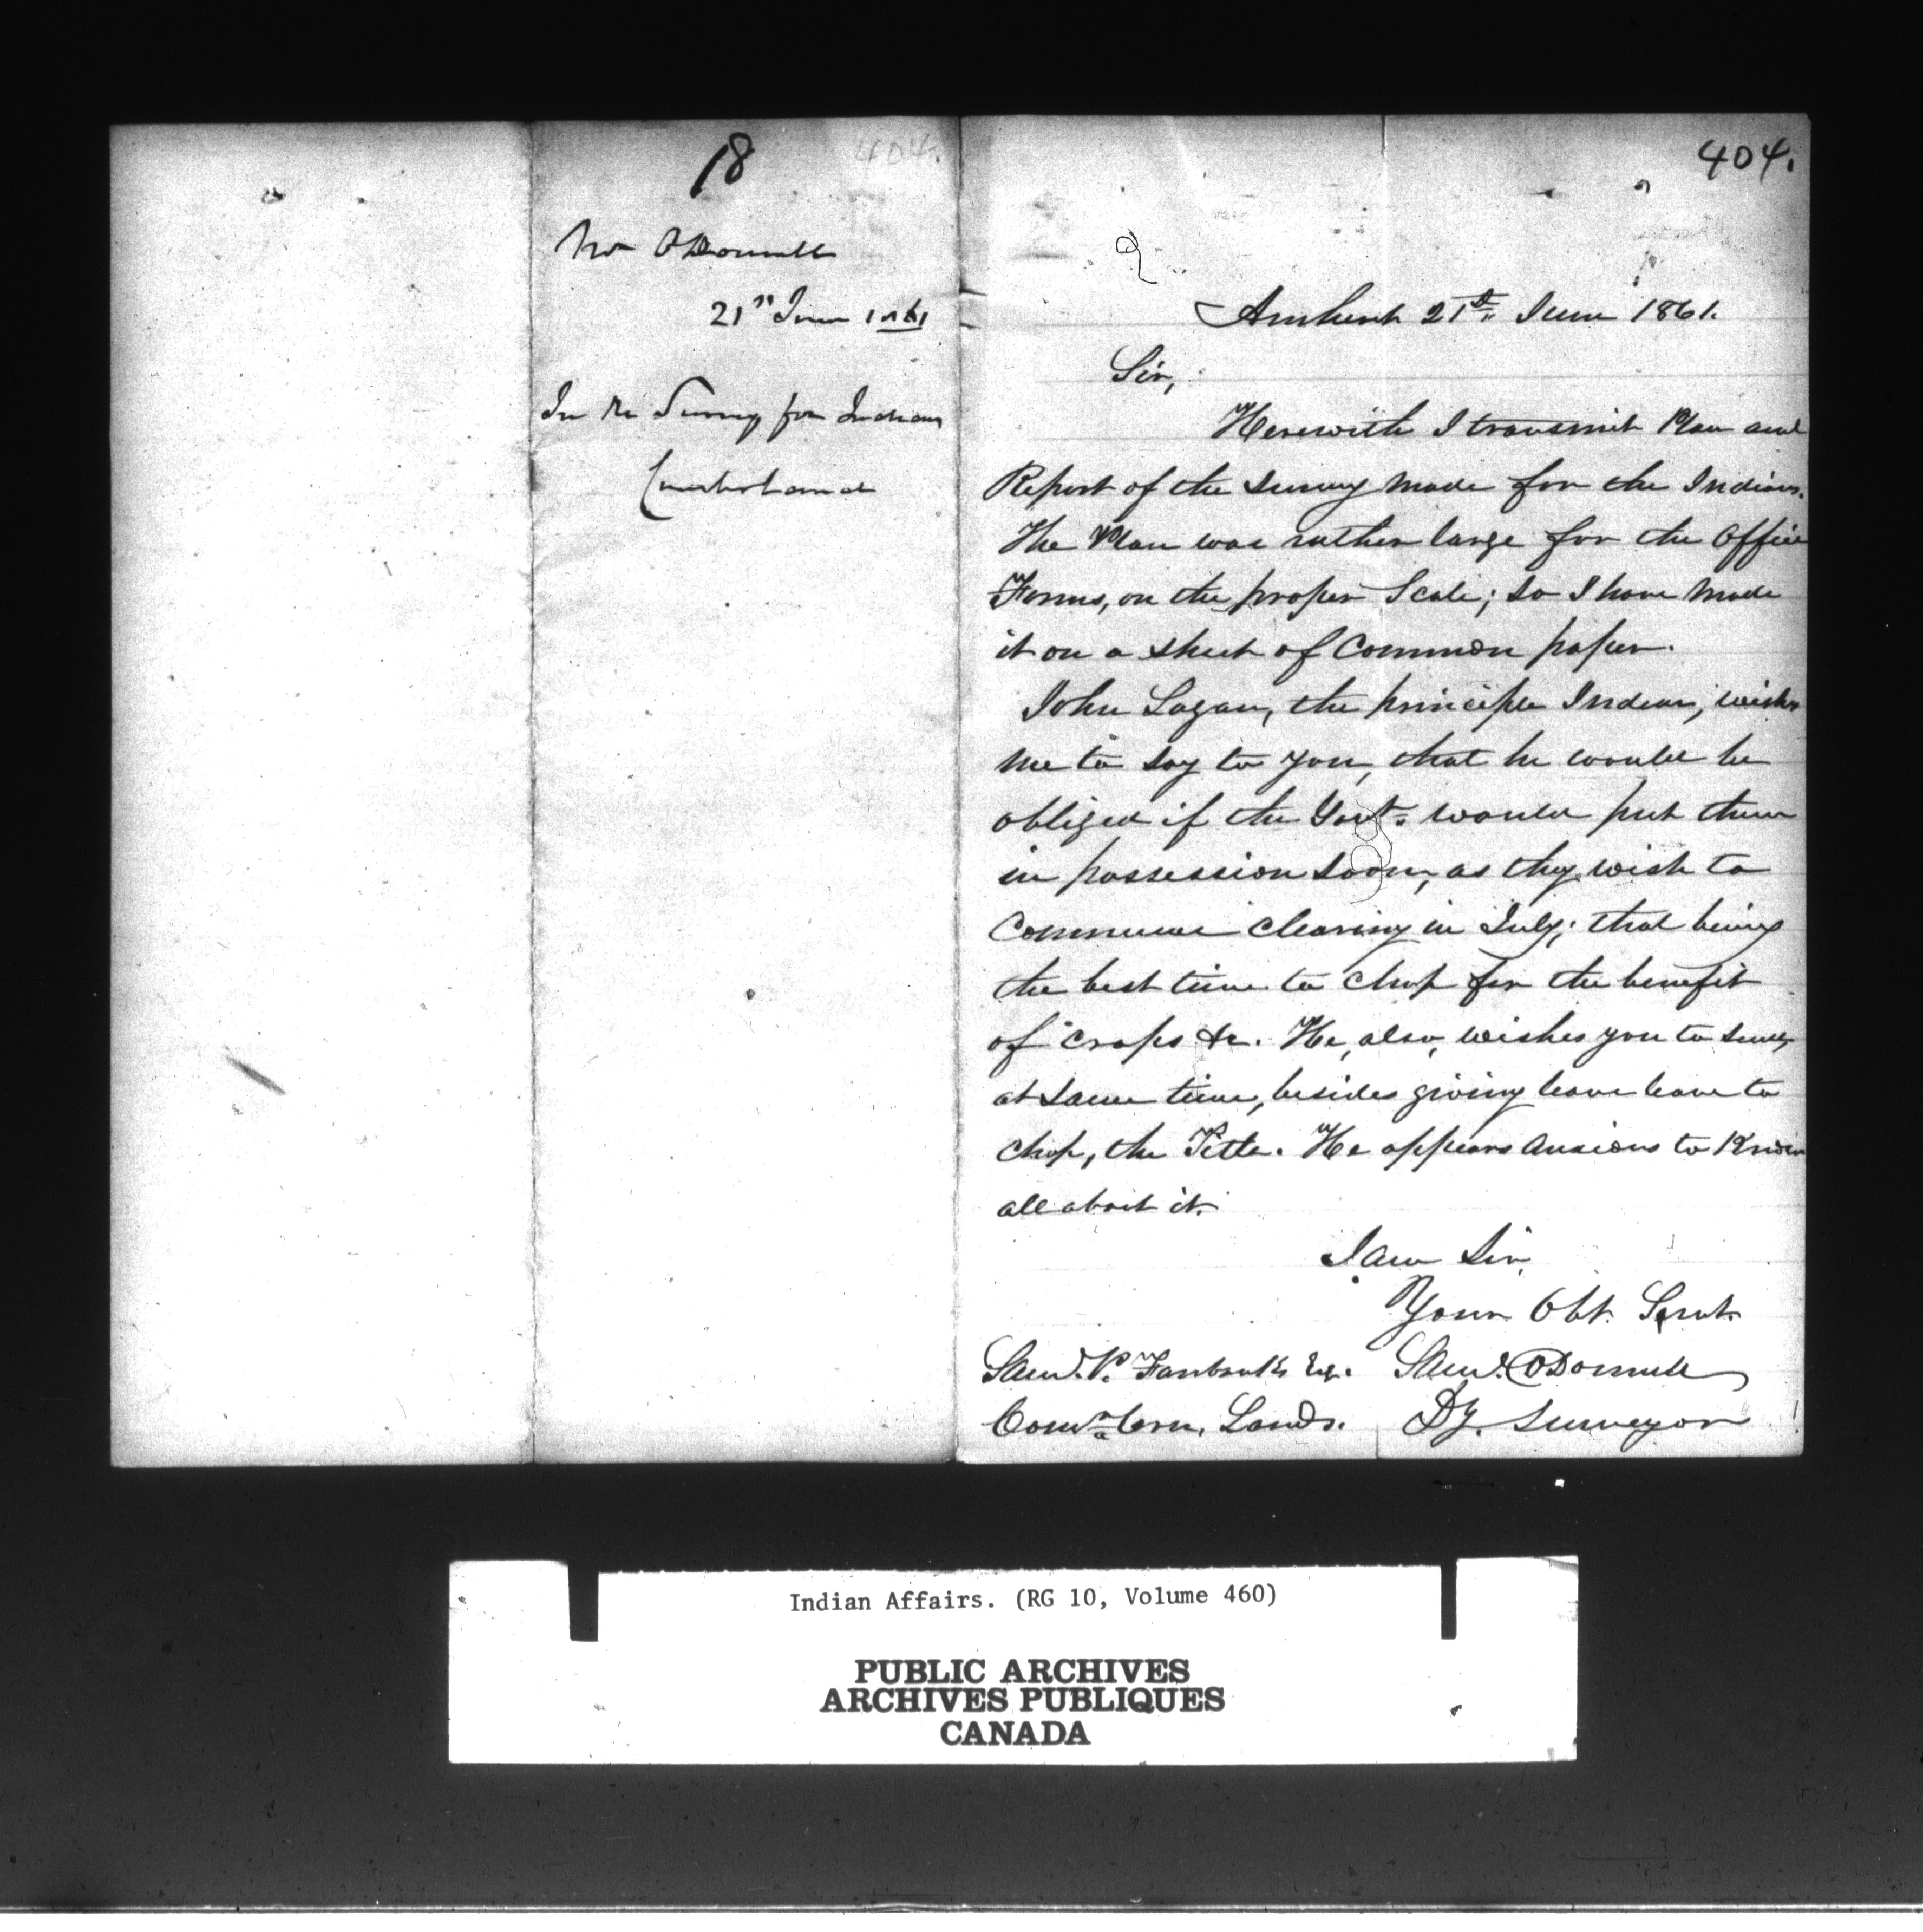 18
404.
Mr O'Donnell
21st June 1861
In Re Survey for Indians
Cumberland
404.
Amherst 21st June 1861.
Sir,
Herewith I transmit Plan and
Report of the survey made for the Indians.
The Plan was rather large for the Office
Forms, on the proper Scale; so I have made
it on a sheet of Common paper.
John Logan, the principle Indian, wishes
me to say to you, that he would be
obliged if the Govt. would put them
in possession soon, as they wish to
Commence clearing in July; that being
the best time to chop for the benefit
of crops &c. He, also, wishes you to send,
at same time, besides giving leave leave to
chop, the Title. He appears anxious to Know
all about it.
I am Sir,
Your Obt. Servt.
Saml. O'Donnell
Dy. Surveyor
Saml. P. Fairbanks Esq.
Comr. Crn. Lands.
Indian Affairs. (RG 10, Volume 460)
PUBLIC ARCHIVES
ARCHIVES PUBLIQUES
CANADA